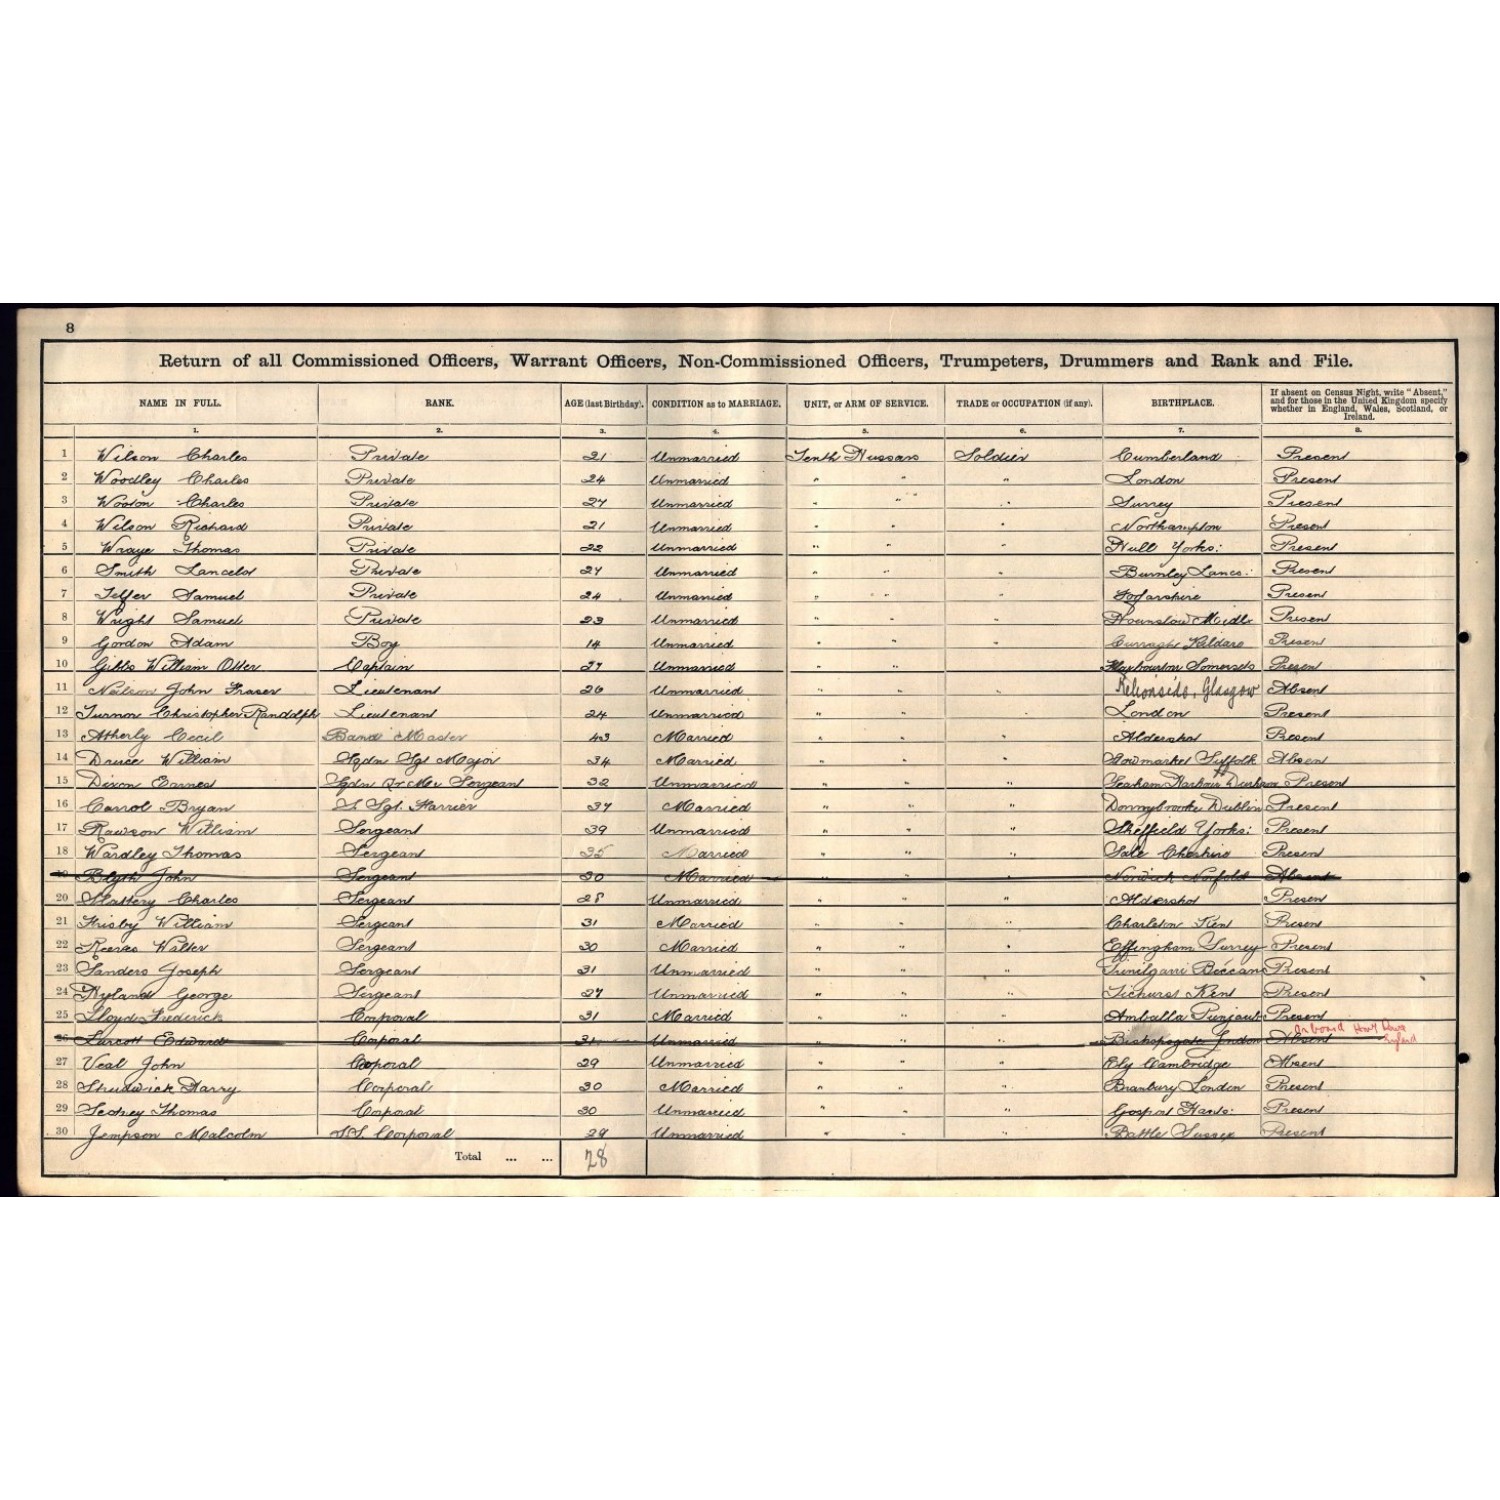 8
Return of all Commissioned Officers, Warrant Officers, Non-Commissioned Officers, Trumpeters, Drummers and Rank and File.
NAME IN FULL. RANK. AGE (last Birthday). CONDITION as to MARRIAGE. UNIT, or ARM OF SERVICE. TRADE or OCCUPATION (if any). BIRTHPLACE. If absent on Census Night, write "Absent," and for those in the United Kingdom specify whether in England, Wales, Scotland, or Ireland.
1. 2. 3. 4. 5. 6. 7. 8.
1 Wilson Charles Private 21 Unmarried Tenth Hussars Soldier Cumberland Present
2 Woodley Charles Private 24 Unmarried " " " London Present
3 Wooton Charles Private 27 Unmarried " " " Surrey Present
4 Wilson Richard Private 21 Unmarried " " " Northampton Present
5 Wraye Thomas Private 22 Unmarried " " " Hull Yorks: Present
6 Smith Lancelot Private 27 Unmarried " " " Burnley Lancs: Present
7 Telfer Samuel Private 24 Unmarried " " " Forfarshire Present
8 Wright Samuel Private 23 Unmarried " " " Hounslow Midlx Present
9 Gordon Adam Boy 14 Unmarried " " " Curragh Kildare Present
10 Gibbs William Otter Captain 27 Unmarried " " Somersets Present
11 Neilson John Fraser Lieutenant 26 Unmarried " " " Kelvinside, Glasgow Absent
12 Turnor Christopher Randolph Lieutenant 24 Unmarried " " " London Present
13 Atherly Cecil Band Master 43 Married " " " Aldershot Present
14 Druce William Sqdn Sgt Major 34 Married " " " Stowmarket Suffolk Absent
15 Dixon Earnest Sqdn Qr Mr Sergeant 32 Unmarried " " " Seaham Harbour Durham Present
16 Carrol Bryan S. Sgt. Farrier 37 Married " " " Donnybrooke Dublin Present
17 Rawson William Sergeant 39 Unmarried " " " Sheffield Yorks: Present
18 Wardley Thomas Sergeant 35 Married " " " Sale Cheshire Present
19 Blyth John Sergeant 30 Married " " " Norwich Norfolk Absent
20 Slattery Charles Sergeant 28 Unmarried " " " Aldershot Present
21 Frisby William Sergeant 31 Married " " " Charlton Kent Present
22 Reeves Walter Sergeant 30 Married " " " Effingham Surrey Present
23 Sanders Joseph Sergeant 31 Unmarried " " " Present
24 Ryland George Sergeant 27 Unmarried " " " Ticehurst Kent Present
25 Lloyd Frederick Corporal 31 Married " " " Amballa Punjaub Present
26 Edward Corporal 31 Unmarried " " " Bishopsgate London Absent on board
27 Veal John Corporal 29 Unmarried " " " Ely Cambridge Absent
28 Strudwick Harry Corporal 30 Married " " " London Present
29 Sedney Thomas Corporal 30 Unmarried " " " Gosport Hants: Present
30 Jempson Malcolm S.S. Corporal 29 Unmarried " " " Battle Sussex Present
Total ... ... 28